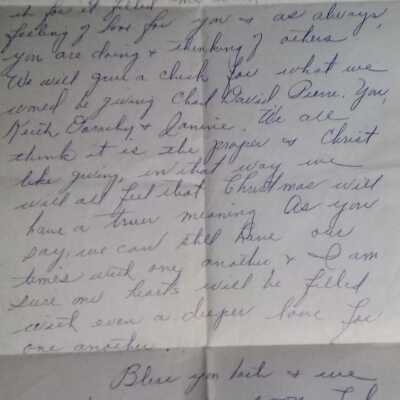 it for it filled
feeling of love for you & as always
you are doing & thinking of others
We will give a check for what we
would be giving Chad David Pierre. You,
Keith Dorothy & Janine. We all
think it is the proper & Christ
like giving, in that way we
will all feel that Christmas will
have a truer meaning As you
say, we can still have our
times with one another & I am
sure our hearts will be filled
with even a deeper love for
one another.
Bless you both & we